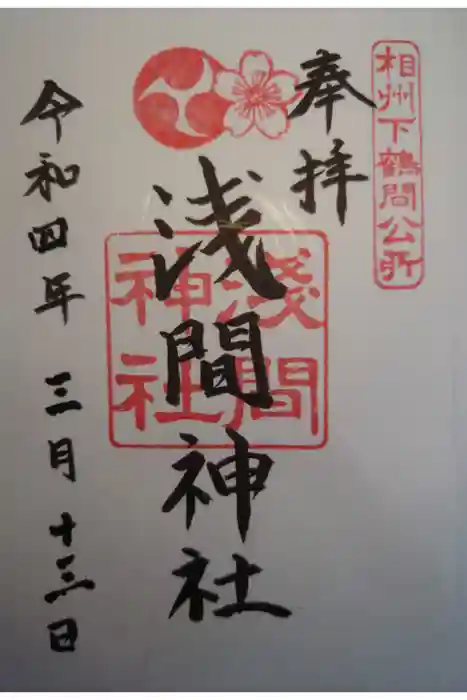 相州下鶴間公所
奉拝
浅間神社
淺間
神社
令和四年 三月 十三日